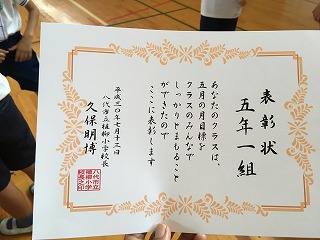 表彰状
五年一組
あなたのクラスは、
五月の月目標を
クラスのみんなで
しっかりとまもること
ができたので
ここに表彰します
平成三〇年七月十三日
八代市立植柳小学校長
久保明博
八代市立
植柳小学
校長之印